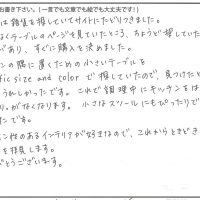 お書き下さい。(一言でも文章でも絵でも大丈夫です!)
は雑貨を探していてサイトにたどりつきました。
なくテーブルのページを見ていたところ、ちょうど探していた
があり、すぐに購入を決めました。
ンの隣に置くための小さいテーブルを
fic size and color で探していたので、見つけた
うれしかったです。これで調理中にキッチンは
がなくなります。小さなスツールにもぴったりで
たです。
性のあるインテリアが好きなので、これからもときどき
を拝見します。
とうございます。